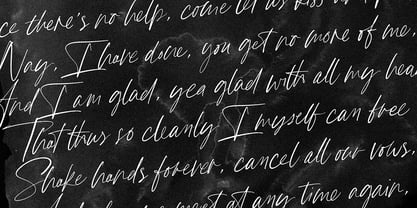 ce there's no help, come let us kiss
Nay, I have done, you get no more of me,
And I am glad, yea glad with all my hea
That thus so cleanly I myself can free
Shake hands forever, cancel all our vows,
meet at any time again,